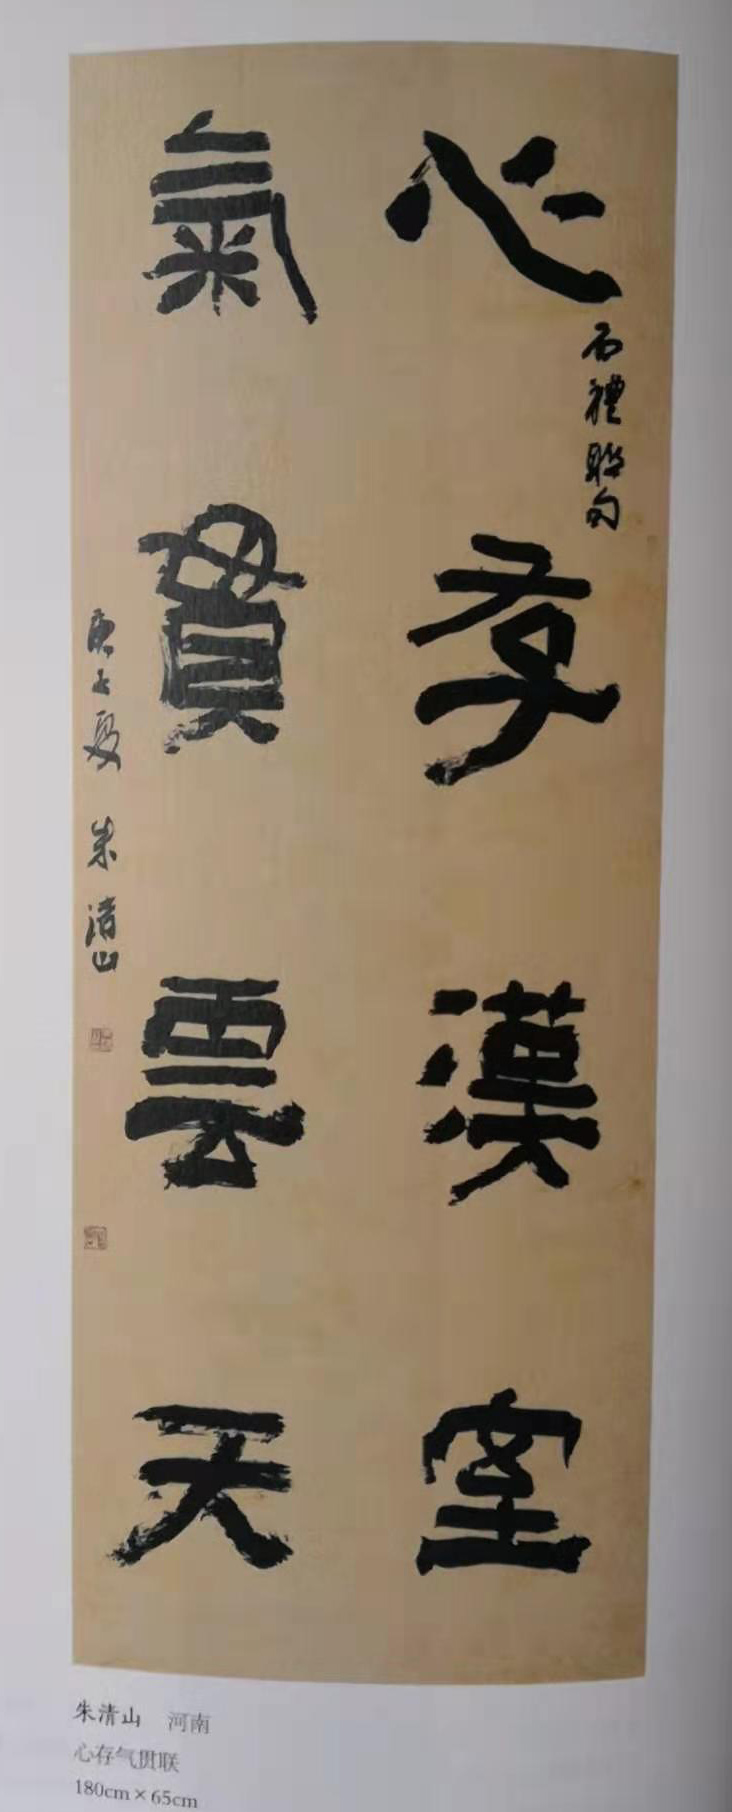 心存漢室
石禮聯句
氣貫雲天
庚子夏 朱清山
朱清山 河南
心存气贯联
180cm×65cm